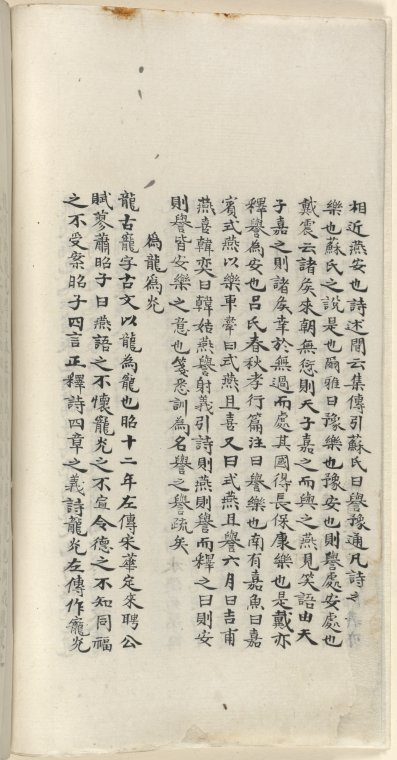 相近燕安也詩述聞云集傳引蘇氏曰譽豫通凡詩之
樂也蘇氏之說是也爾雅曰豫樂也豫安也則譽處安處也
戴震云諸矦來朝無愆則天子嘉之而與之燕見笑語由天
子嘉之則諸矦幸於無過而處其國得長保康樂也是戴亦
釋譽為安也呂氏春秋孝行篇注曰譽樂也南有嘉魚曰嘉
賓式燕以樂車舝曰式燕且喜又曰式燕且譽六月曰吉甫
燕喜韓奕曰韓姞燕譽射義引詩則燕則譽而釋之曰則安
則譽皆安樂之意也箋悉訓為名譽之譽疏矣
為龍為光
龍古寵字古文以龍為寵也昭十二年左傳宋華定來聘公
賦蓼蕭昭子曰燕語之不懷寵光之不宣令德之不知同福
之不受案昭子四言正釋詩四章之義詩龍光左傳作寵光